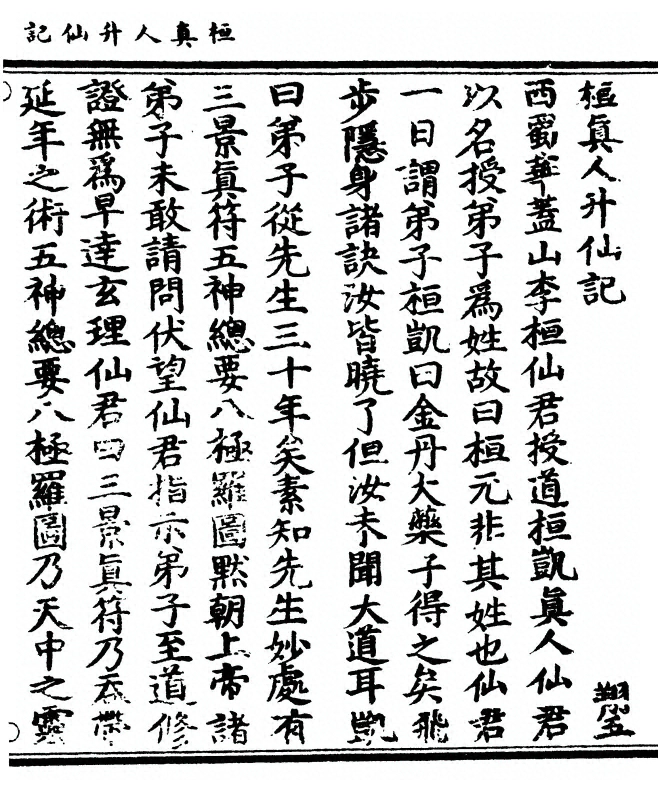 桓真人升仙記
桓眞人升仙記 翔五
西蜀華蓋山李桓仙君授道桓凱眞人仙君
以名授弟子爲姓故曰桓元非其姓也仙君
一日謂弟子桓凱曰金丹大藥子得之矣飛
步隱身諸訣汝皆曉了但汝未聞大道耳凱
曰弟子從先生三十年矣素知先生妙處有
三景眞符五神總要八極羅圖默朝上帝諸
弟子未敢請問伏望仙君指示弟子至道修
證無爲早達玄理仙君曰三景眞符乃吞帶
延年之術五神總要八極羅圖乃天中之靈